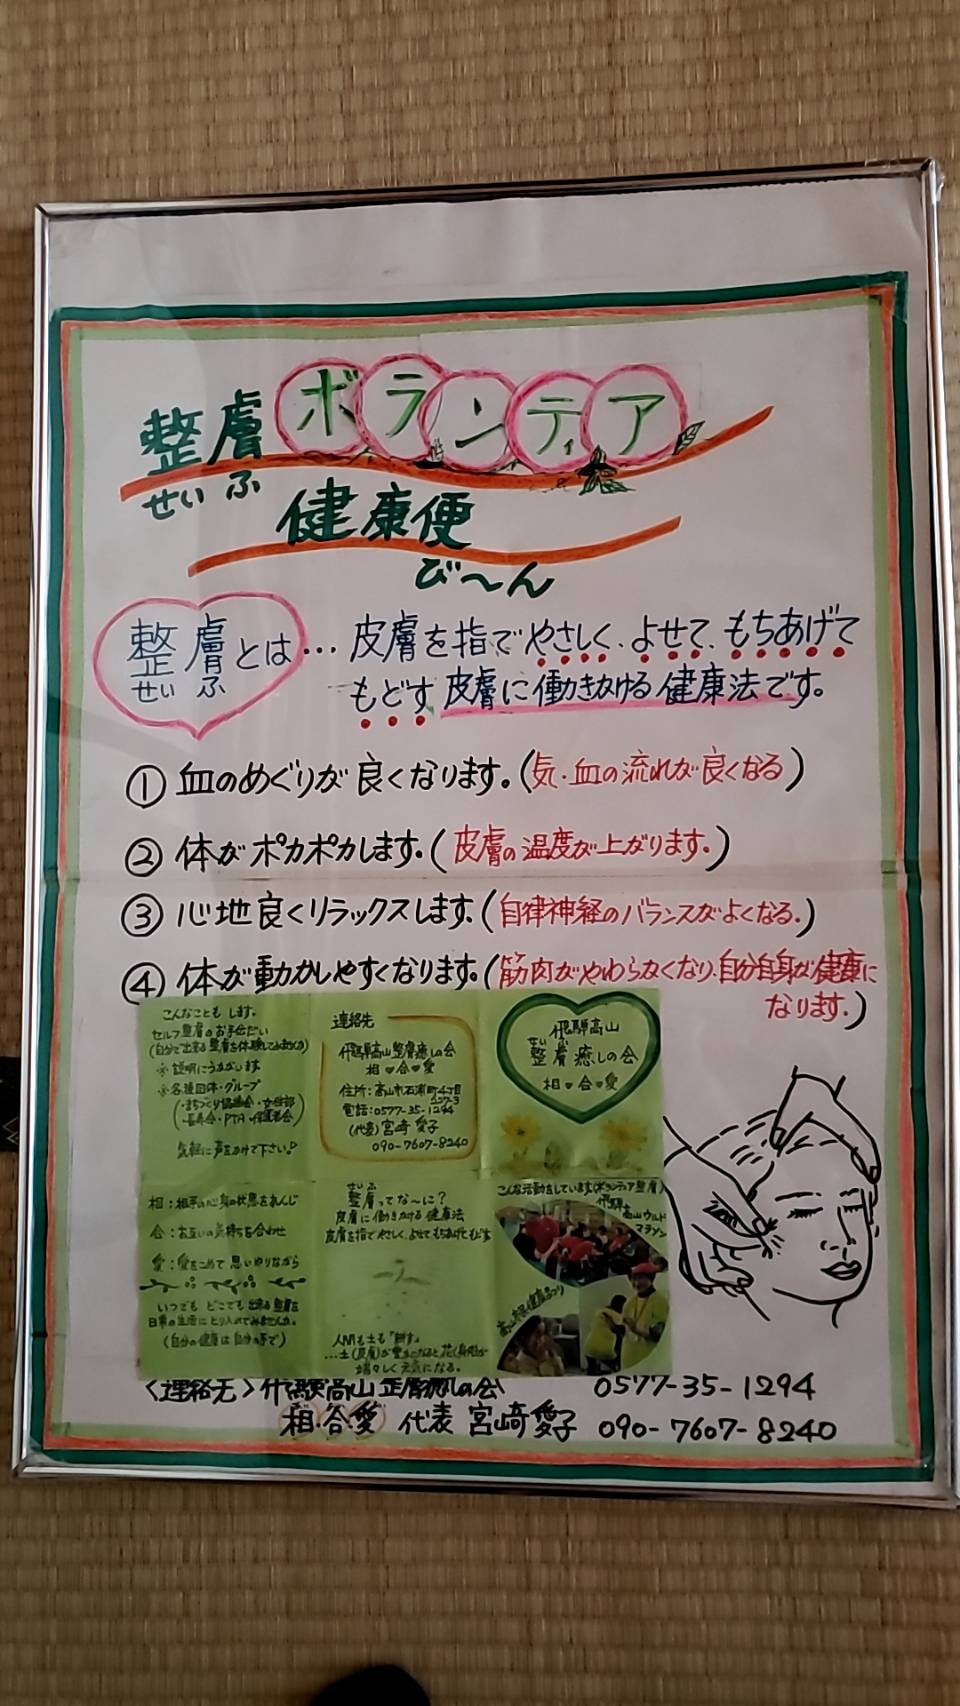 整膚ボランティア
せいふ
健康便
び〜ん
整膚とは…皮膚を指でやさしく、よせて、もちあげて
せいふ
もどす皮膚に働きかける健康法です。
①血のめぐりが良くなります。(気・血の流れが良くなる)
②体がポカポカします。(皮膚の温度が上がります。)
③心地良くリラックスします。(自律神経のバランスがよくなる。)
④体が動かしやすくなります。(筋肉がやわらなくなり、自分自身が健康に
なります。)
こんなことも します。
セルフ整膚のお手伝い
(自分で出来る整膚を体験してみませんか)
※説明にうかがいます
※各種団体・グループ
・まちづくり協議会・女性部
・長寿会・PTA・保護者会
気軽に声をかけて下さい。
連絡先
飛騨高山整膚癒しの会
相♥合♥愛
住所：高山市石浦町4丁目
電話：0577-35-1294
(代表)宮﨑愛子
090-7607-8240
飛騨高山
せいふ
整膚癒しの会
相♥合♥愛
相：相手の心身の状態をかんじ
合：お互いの気持ちを合わせ
愛：愛をこめて思いやりながら
いつでも どこでも 出来る整膚を
日常の生活にとり入れてみませんか。
(自分の健康は自分の手で)
せいふ
整膚ってな〜に？
皮膚に働きかける健康法
皮膚を指でやさしく、よせてもちあげもどす
人間も土も「耕す」
…土(皮膚)が豊かになると花(身体)が
瑞々しく元気になる。
こんな活動をしています(ボランティア整膚)
飛騨
高山ウルトラ
マラソン
高山市民健康まつり
<連絡先>飛騨高山整膚癒しの会 0577-35-1294
相・合・愛 代表 宮﨑愛子 090-7607-8240